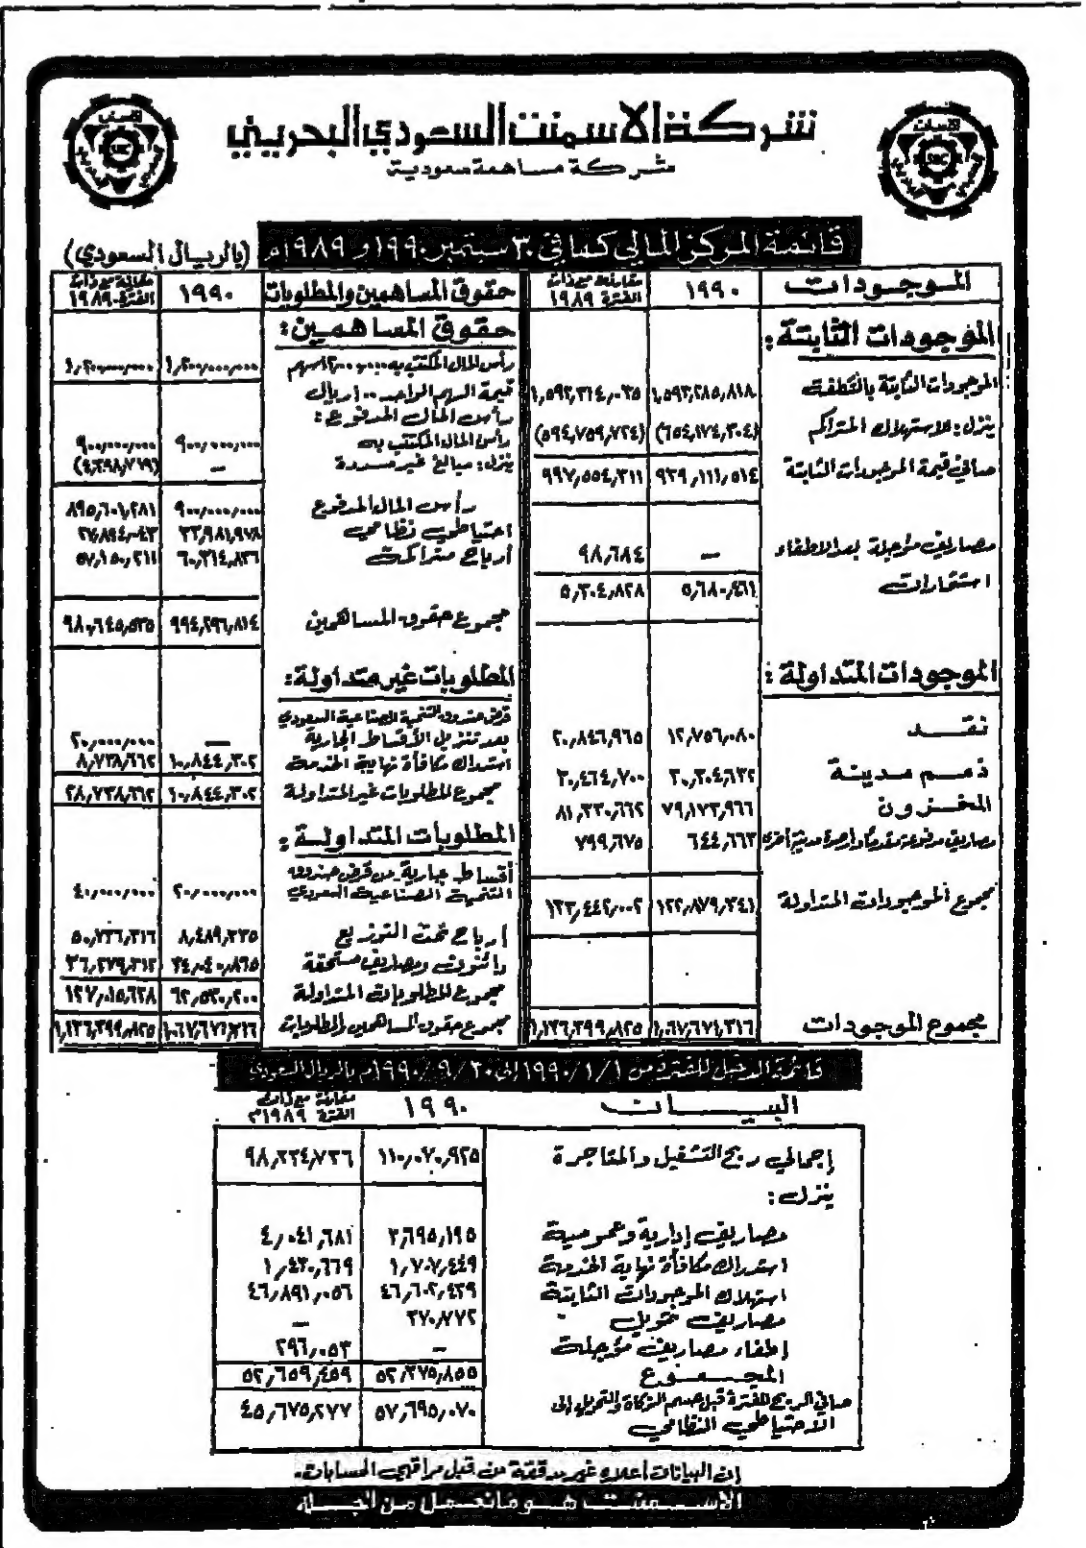 شركة الاسمنت السعودي البحريني
شركة مساهمة سعودية
قائمة المركز المالي كما في ٣٠ سبتمبر ١٩٩٠ و ١٩٨٩م (بالريال السعودي)
الموجودات ١٩٩٠ مقارنة مع ذات الفترة ١٩٨٩
الموجودات الثابتة:
الموجودات الثابتة بالتكلفة ١,٥٩٣,٢٨٥,٨١٨ ١,٥٩٢,٣١٤,٠٣٥
ينزل: الاستهلاك المتراكم (٦٥٤,١٧٤,٣٠٤) (٥٩٤,٧٥٩,٧٢٤)
صافي قيمة الموجودات الثابتة ٩٣٩,١١١,٥١٤ ٩٩٧,٥٥٤,٣١١
مصاريف مؤجلة بعد الاطفاء — ٩٨,٦٨٤
استثمارات ٥,٦٨٠,٤٦١ ٥,٣٠٤,٨٢٨
الموجودات المتداولة:
نقد ١٢,٧٥٦,٠٨٠ ٢٠,٨٤٦,٩٦٥
ذمم مدينة ٣٠,٣٠٤,٦٣٢ ٣٠,٤٦٤,٧٠٠
المخزون ٧٩,١٧٣,٩٦٦ ٨١,٣٣٠,٦٦٢
مصاريف مدفوعة مقدماً وأرصدة مدينة أخرى ٦٤٤,٦٦٣ ٧٩٩,٦٧٥
مجموع الموجودات المتداولة ١٢٢,٨٧٩,٣٤١ ١٣٣,٤٤٢,٠٠٢
مجموع الموجودات ١,٠٦٧,٦٧١,٣١٦ ١,١٣٦,٣٩٩,٨٢٥
حقوق المساهمين والمطلوبات ١٩٩٠ مقارنة مع ذات الفترة ١٩٨٩
حقوق المساهمين:
رأس المال المكتتب به ١٢,٠٠٠,٠٠٠ سهم ١,٢٠٠,٠٠٠,٠٠٠ ١,٢٠٠,٠٠٠,٠٠٠
قيمة السهم الواحد ١٠٠ ريال
رأس المال المدفوع:
رأس المال المكتتب به ٩٠٠,٠٠٠,٠٠٠ ٩٠٠,٠٠٠,٠٠٠
ينزل: مبالغ غير مسددة — (٤,٣٩٨,٧١٩)
رأس المال المدفوع ٩٠٠,٠٠٠,٠٠٠ ٨٩٥,٦٠١,٢٨١
احتياطي نظامي ٣٣,٩٨١,٩٧٨ ٢٧,٨٩٤,٠٤٣
أرباح متراكمة ٦٠,٣١٤,٨٣٦ ٥٧,١٥٠,٢١١
مجموع حقوق المساهمين ٩٩٤,٢٩٦,٨١٤ ٩٨٠,٦٤٥,٥٣٥
المطلوبات غير متداولة:
قرض صندوق التنمية الصناعية السعودي
بعد تنزيل الأقساط الجارية — ٢٠,٠٠٠,٠٠٠
استدراك مكافأة نهاية الخدمة ١٠,٨٤٤,٣٠٢ ٨,٧٣٨,٦٦٢
مجموع المطلوبات غير المتداولة ١٠,٨٤٤,٣٠٢ ٢٨,٧٣٨,٦٦٢
المطلوبات المتداولة:
أقساط جارية من قرض صندوق
التنمية الصناعية السعودي ٢٠,٠٠٠,٠٠٠ ٤٠,٠٠٠,٠٠٠
أرباح تحت التوزيع ٨,٤٨٩,٣٣٥ ٥٠,٧٣٦,٣١٦
دائنون ومصاريف مستحقة ٣٤,٠٤٠,٨٦٥ ٣٦,٢٧٩,٣١٢
مجموع المطلوبات المتداولة ٦٢,٥٣٠,٢٠٠ ١٢٧,٠١٥,٦٢٨
مجموع حقوق المساهمين والمطلوبات ١,٠٦٧,٦٧١,٣١٦ ١,١٣٦,٣٩٩,٨٢٥
قائمة الدخل للفترة من ١/١/١٩٩٠ إلى ٩/٣٠/١٩٩٠م بالريال السعودي
البيــــان ١٩٩٠ مقارنة مع ذات الفترة ١٩٨٩م
إجمالي ربح التشغيل والمتاجرة ١١٠,٠٧٠,٩٢٥ ٩٨,٣٣٤,٧٣٦
ينزل:
مصاريف إدارية وعمومية ٣,٦٩٥,١٩٥ ٤,٠٤١,٦٨١
استدراك مكافأة نهاية الخدمة ١,٧٠٧,٤٤٩ ١,٤٣٠,٦٦٩
استهلاك الموجودات الثابتة ٤٦,٦٠٢,٤٣٩ ٤٦,٨٩١,٠٥٦
مصاريف تمويل ٣٧٠,٧٧٢ —
إطفاء مصاريف مؤجلة — ٢٩٦,٠٥٣
المجمــوع ٥٢,٣٧٥,٨٥٥ ٥٢,٦٥٩,٤٥٩
صافي الربح للفترة قبل حسم الزكاة والتحويل إلى
الاحتياطي النظامي ٥٧,٦٩٥,٠٧٠ ٤٥,٦٧٥,٢٧٧
إن البيانات أعلاه غير مدققة من قبل مراقبي الحسابات.
الاسمنت هو ما نعمل من أجله